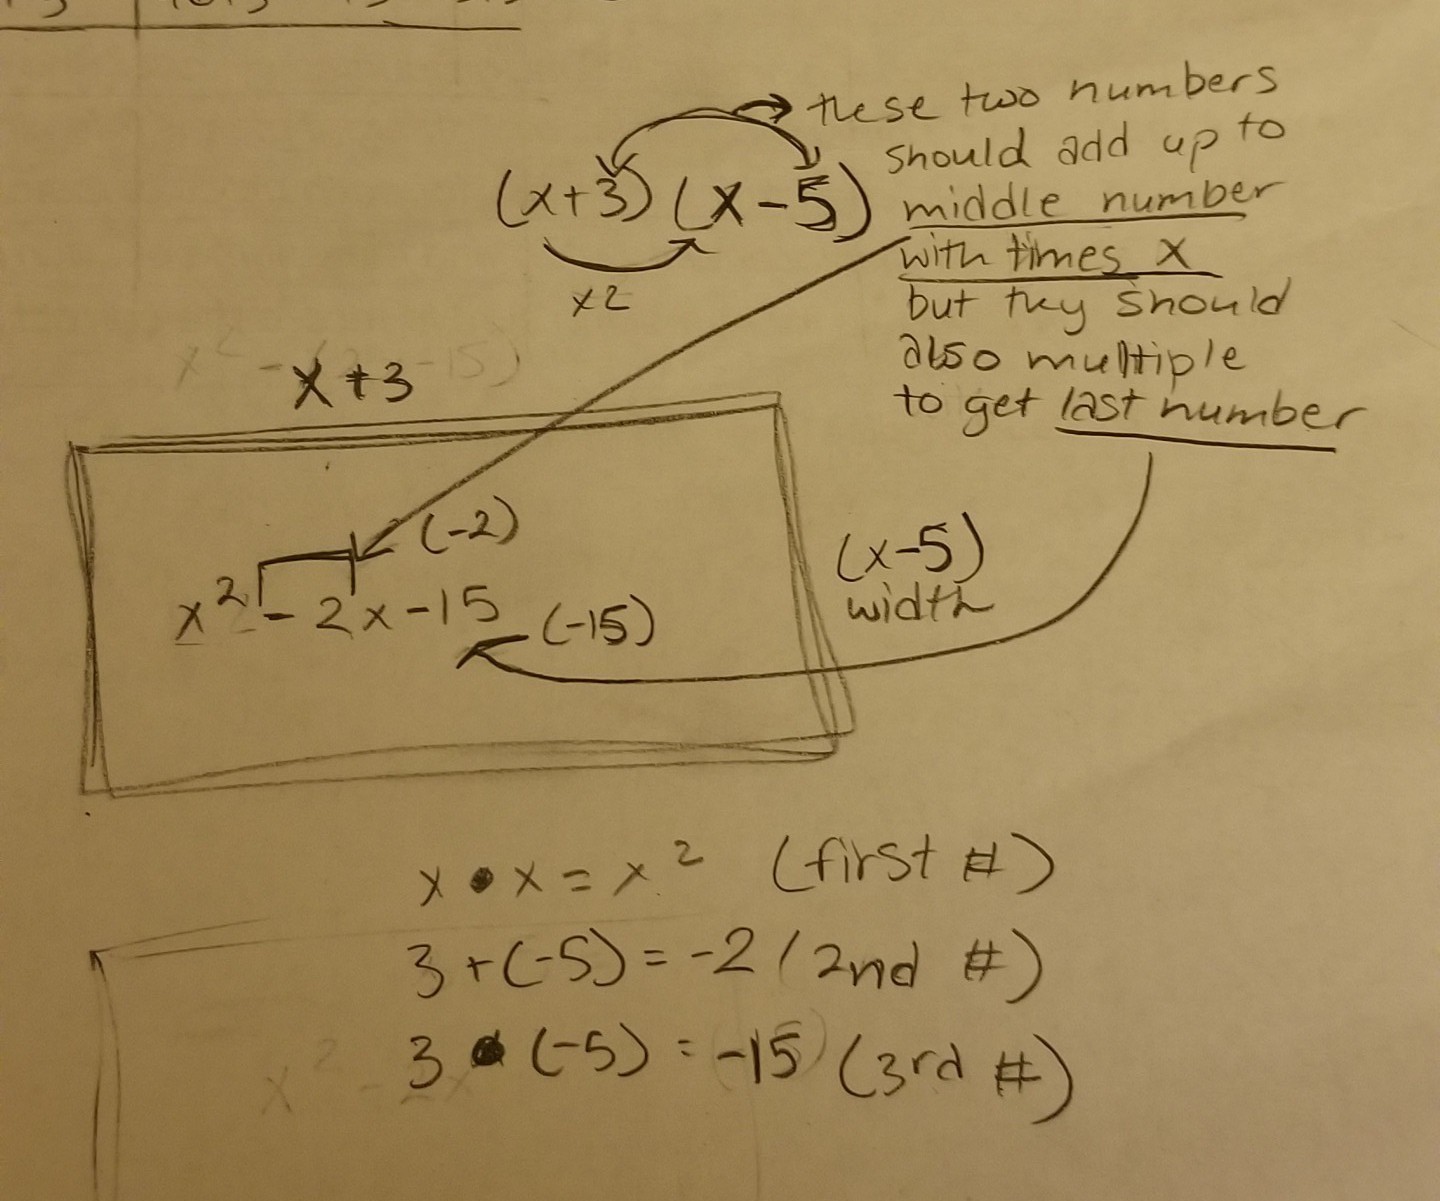 these two numbers
should add up to
(x+3) (x-5)
middle number
with times x
x2
but they should
also multiple
to get last number
x+3
(-2)
x² - 2x - 15
(-15)
(x-5)
width
x • x = x² (first #)
3 + (-5) = -2 (2nd #)
3 • (-5) = -15 (3rd #)